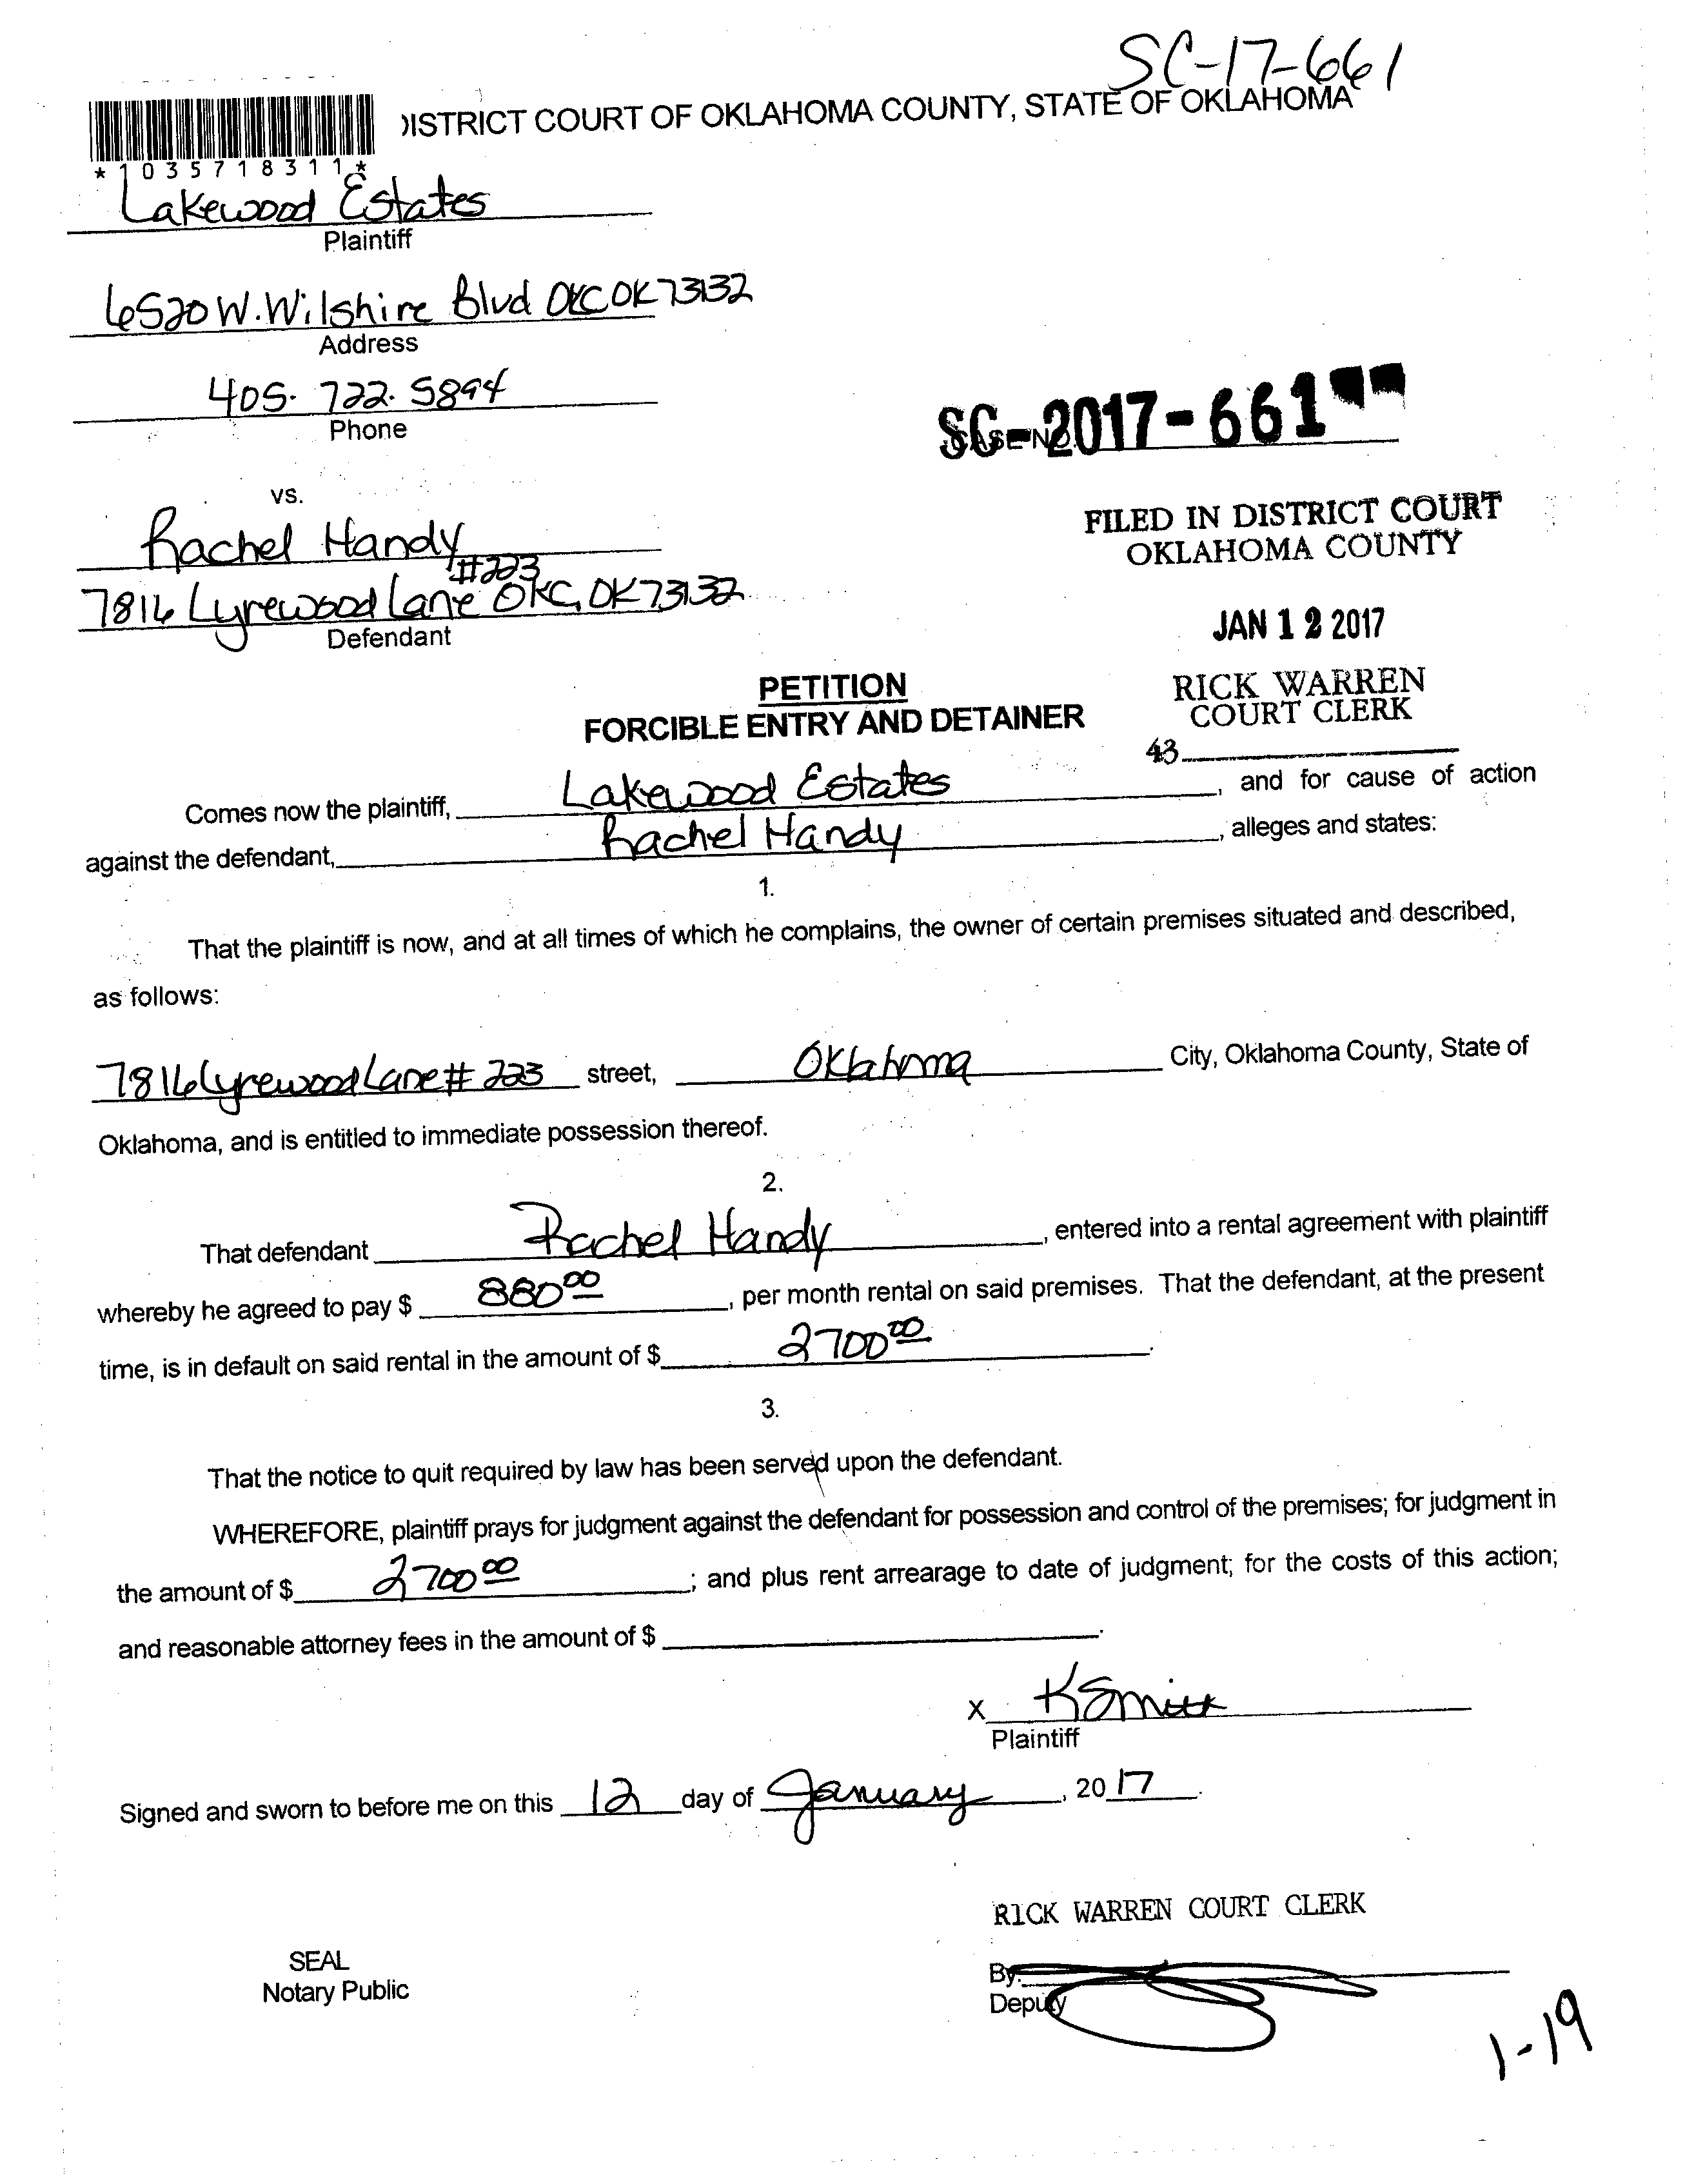 SC-17-661
DISTRICT COURT OF OKLAHOMA COUNTY, STATE OF OKLAHOMA
*1035718311*
Lakewood Estates
Plaintiff
6520 W. Wilshire Blvd OKC OK 73132
Address
405. 722. 5894
Phone
SC-2017-661
CASE NO.
vs.
Rachel Handy
#223
7816 Lyrewood Lane OKC, OK 73132
Defendant
FILED IN DISTRICT COURT
OKLAHOMA COUNTY
JAN 12 2017
RICK WARREN
COURT CLERK
43
PETITION
FORCIBLE ENTRY AND DETAINER
Comes now the plaintiff, Lakewood Estates, and for cause of action
against the defendant, Rachel Handy, alleges and states:
1.
That the plaintiff is now, and at all times of which he complains, the owner of certain premises situated and described,
as follows:
7816 Lyrewood Lane # 223 street, Oklahoma City, Oklahoma County, State of
Oklahoma, and is entitled to immediate possession thereof.
2.
That defendant Rachel Handy, entered into a rental agreement with plaintiff
whereby he agreed to pay $ 880 00, per month rental on said premises. That the defendant, at the present
time, is in default on said rental in the amount of $ 2700 00.
3.
That the notice to quit required by law has been served upon the defendant.
WHEREFORE, plaintiff prays for judgment against the defendant for possession and control of the premises; for judgment in
the amount of $ 2700 00; and plus rent arrearage to date of judgment; for the costs of this action;
and reasonable attorney fees in the amount of $ .
x KSmith
Plaintiff
Signed and sworn to before me on this 12 day of January, 2017.
RICK WARREN COURT CLERK
SEAL
Notary Public
By:
Deputy
1-19